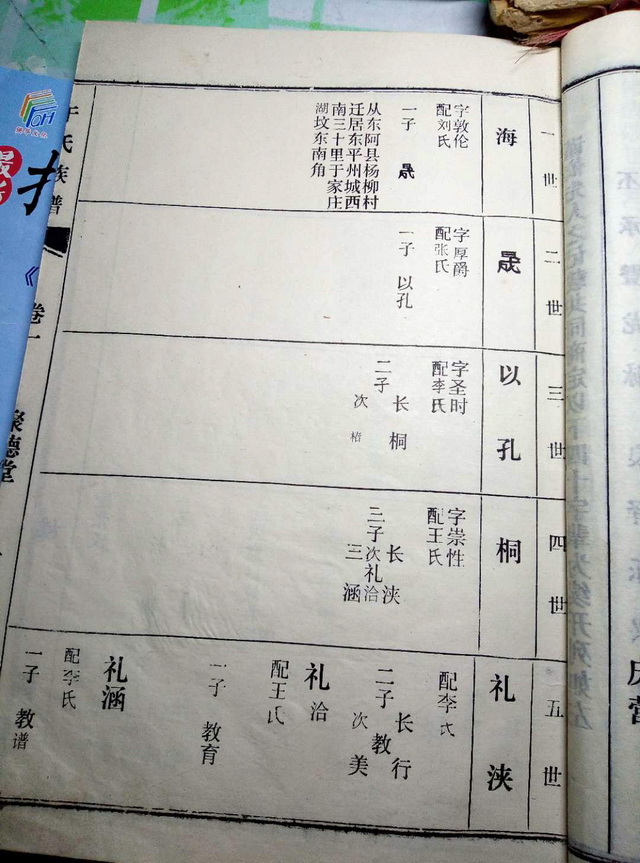 一世
海
字敦伦
配刘氏
一子 晟
从东阿县杨柳村
迁居东平州城西
南三十里于家庄
湖坟东南角
二世
晟
字厚爵
配张氏
一子 以孔
三世
以孔
字圣时
配李氏
二子
长桐
次
四世
桐
字崇性
配王氏
三子
长 浃
次礼洽
三 涵
五世
礼浃
配李氏
二子
长 行
教
次 美
礼洽
配王氏
一子 教育
礼涵
配李氏
一子 教谱
于氏族谱
卷一
聚德堂